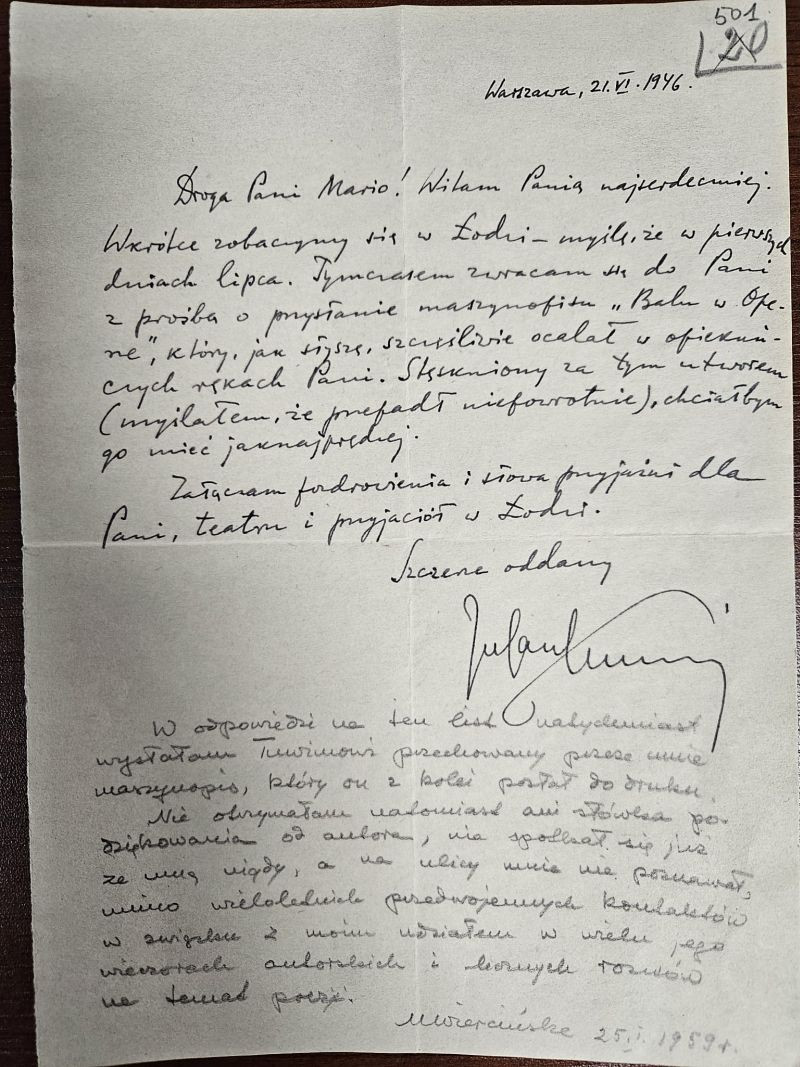 501
20
Warszawa, 21.VI.1946.
Droga Pani Mario! Witam Panią najserdeczniej.
Wkrótce zobaczymy się w Łodzi – myślę, że w pierwszych
dniach lipca. Tymczasem zwracam się do Pani
z prośbą o przysłanie maszynopisu „Balu w Ope-
rze", który, jak słyszę, szczęśliwie ocalał w opiekuń-
czych rękach Pani. Stęskniony za tym utworem
(myślałem, że przepadł niepowrotnie), chciałbym
go mieć jaknajprędzej.
Załączam pozdrowienia i słowa przyjaźni dla
Pani, teatru i przyjaciół w Łodzi.
Szczerze oddany
Julian Tuwim
W odpowiedzi na ten list natychmiast
wysłałam Tuwimowi przechowany przeze mnie
maszynopis, który on z kolei posłał do druku.
Nie otrzymałam natomiast ani słówka po-
dziękowania od autora, nie spotkał się już
ze mną nigdy, a na ulicy mnie nie poznawał,
mimo wieloletnich przedwojennych kontaktów
w związku z moim udziałem w wielu jego
wieczorach autorskich i licznych rozmów
na temat poezji.
MWiercińska 25.I.1959r.